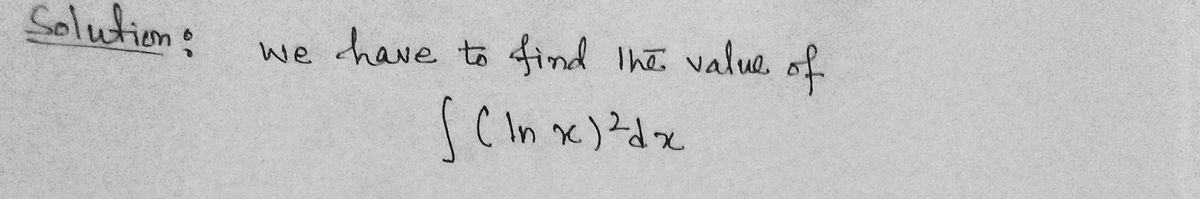 Solution: we have to find the value of
∫ (ln x)²dx